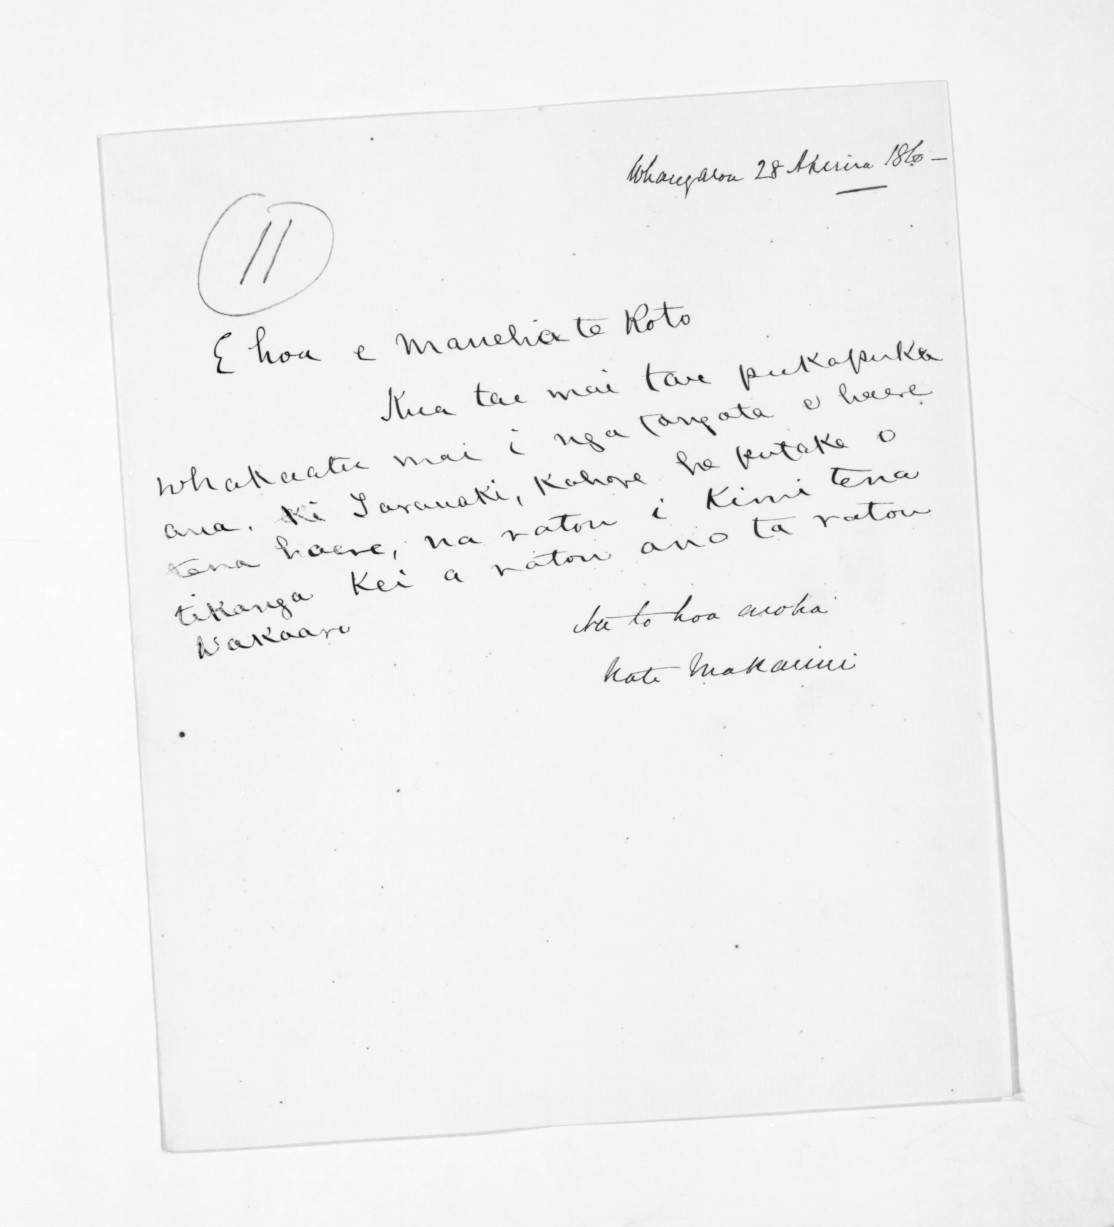 Whangaroa 28 Aperira 1860 —
11
E hoa e Manehia te Koto
Kua tae mai tau pukapuka
whakaatu mai i nga tangata e haere
ana. ki Taranaki, Kahore he putake o
tena haere, na ratou i Kimi tena
tikanga Kei a ratou ano ta ratou
Wakaaro
Na to hoa aroha
Makarini